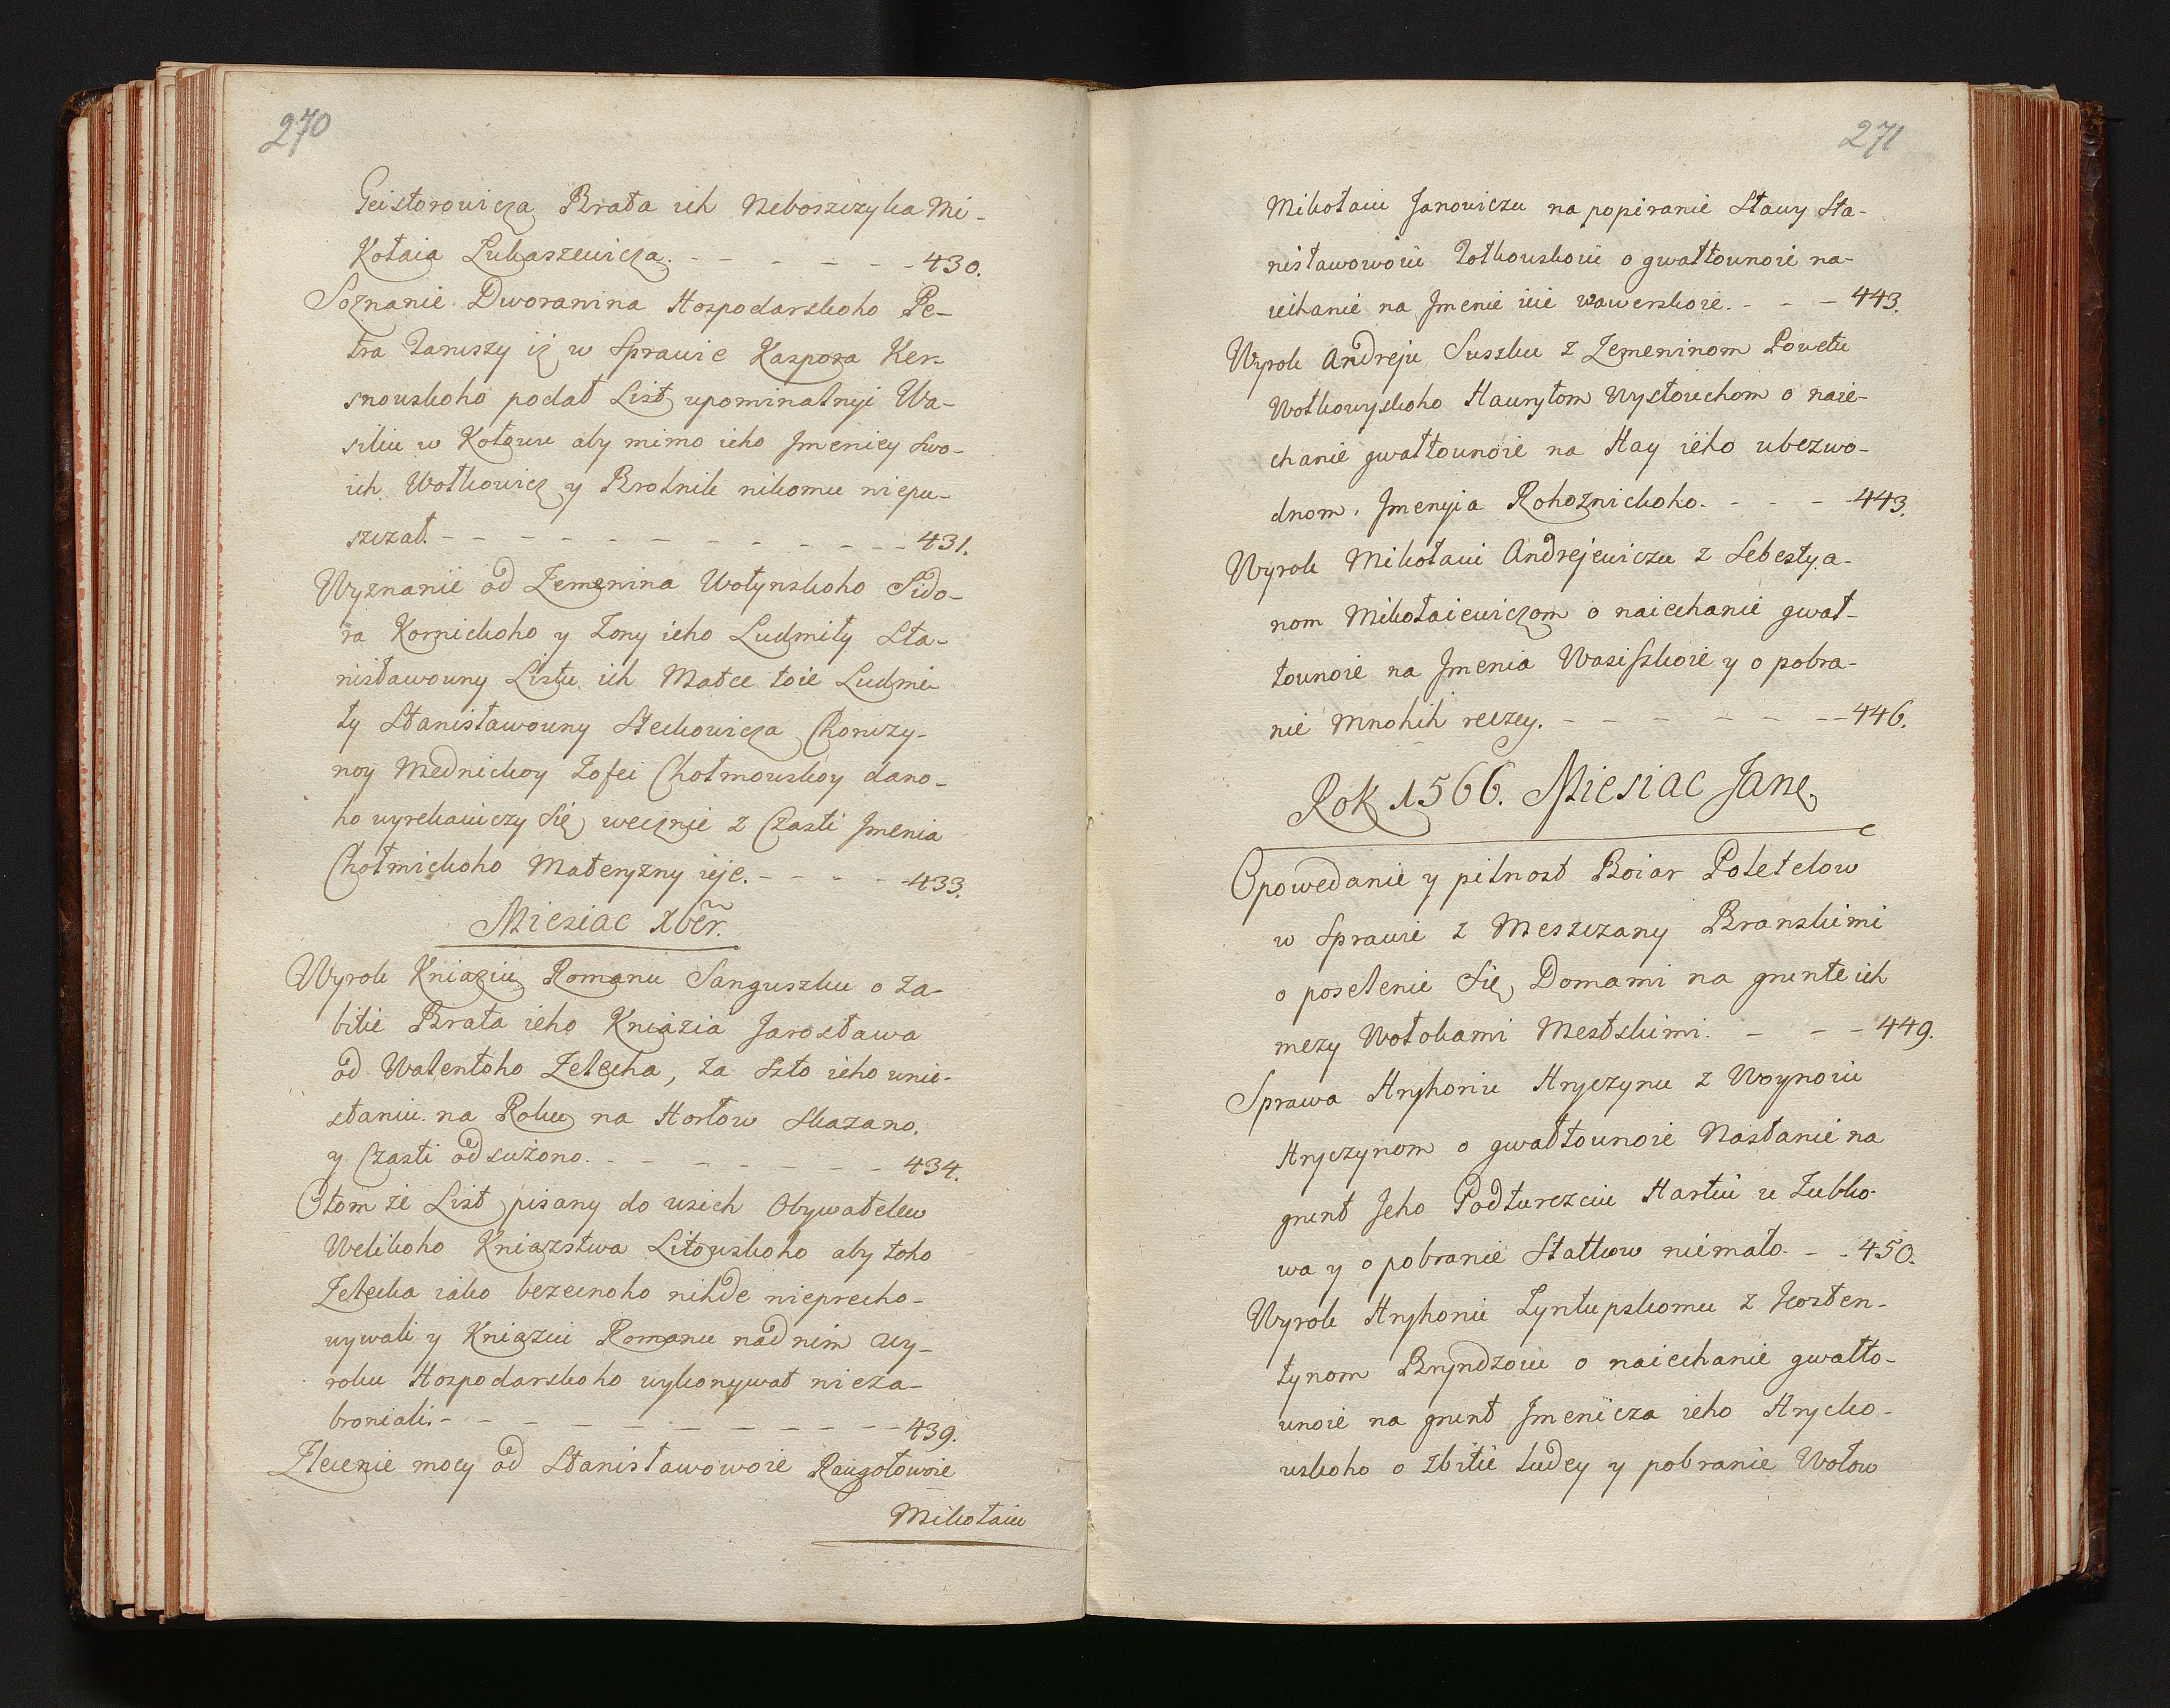 270
Geisторowicza Brata ich Neboszczyka Mi-
Kołaia Łukaszewicza. - - - - - - 430.
Soznanie Dworanina Hospodarskoho Pe-
tra Zaruszy iż w Sprawie Kaspora Ker-
snouskoho podał List upominalnyi Wa-
siliu w Kołowu aby mimo ieho Jmeniey Swo-
ich Wołkowicz y Brolnik nikomu niepu-
szczał. - - - - - - - - - - - 431.
Wyznanie od Zemenina Wołynskoho Sido-
ra Kornickoho y Zony ieho Ludmiły Sta-
nisławouny Listu ich Matce toie Ludmi-
ły Stanisławouny Steckowicza Choruży-
noy Mednickoy Zofei Chołmouskoy dano-
ho wyrekauiczy Się wecznie z Czasti Jmenia
Chołmickoho Materyzny ieje. - - - - 433.
Miesiac Xber.
Wyrok Kniaziu Romanu Sanguszku o Za-
bitie Brata ieho Kniazia Jarosława
od Walentoho Zelecha, za Szto ieho unie-
staniu na Roku na Horłow Skazano,
y Czasti odsużono. - - - - - - - 434.
O tom że List pisany do wsich Obywatelew
Welikoho Kniazstwa Litouskoho aby toho
Zelecha iako bezecnoho nihde nieprecho-
wywali y Kniaziu Romanu nad nim Wy-
roku Hospodarskoho wykonywat nieza-
broniali. - - - - - - - - - - 439.
Zlecenie mocy od Stanisławowoie Raugołowoie
Mikołaiu
271
Mikołaiu Janowiczu na popiranie Stawy Sta-
nisławowoiu Zołkouskoiu o gwałtounoie na-
iechanie na Jmenie ieie wawerskoie. - - - 443.
Wyrok Andreju Suszku z Zemeninom Powetu
Wołkowyskoho Hauryłom Wystouchom o naie-
chanie gwałtounoie na Hay ieho ubezwo-
dnom. Jmenyia Rohoznickoho. - - - - 443.
Wyrok Mikołaiu Andrejewiczu z Sebestya-
nom Mikołaiewiczom o naiechanie gwał-
tounoie na Jmenia Wasiszkoie y o pobra-
nie Mnohih reczey. - - - - - - - - 446.
Rok 1566. Miesiac Jane.
Opowedanie y pilnost Boiar Poletelow
w Sprawie z Meszczany Branskimi
o poselenie Się Domami na grunte ich
mezy Wołokami Mestskimi. - - - 449.
Sprawa Hryhoriu Hryczynu z Woynoiu
Hryczynom o gwałtounoie Nasłanie na
grunt Jeho Podturezciu Hartiu u Zubko-
wa y o pobranie Statkow niemało. - - 450.
Wyrok Hryhoriu Łyntupskomu z Kosten-
tynom Bryndzoiu o naiechanie gwałto-
unoie na grunt Jmeniicza ieho Hrycko-
uskoho o zbitie Ludey y pobranie Wołow